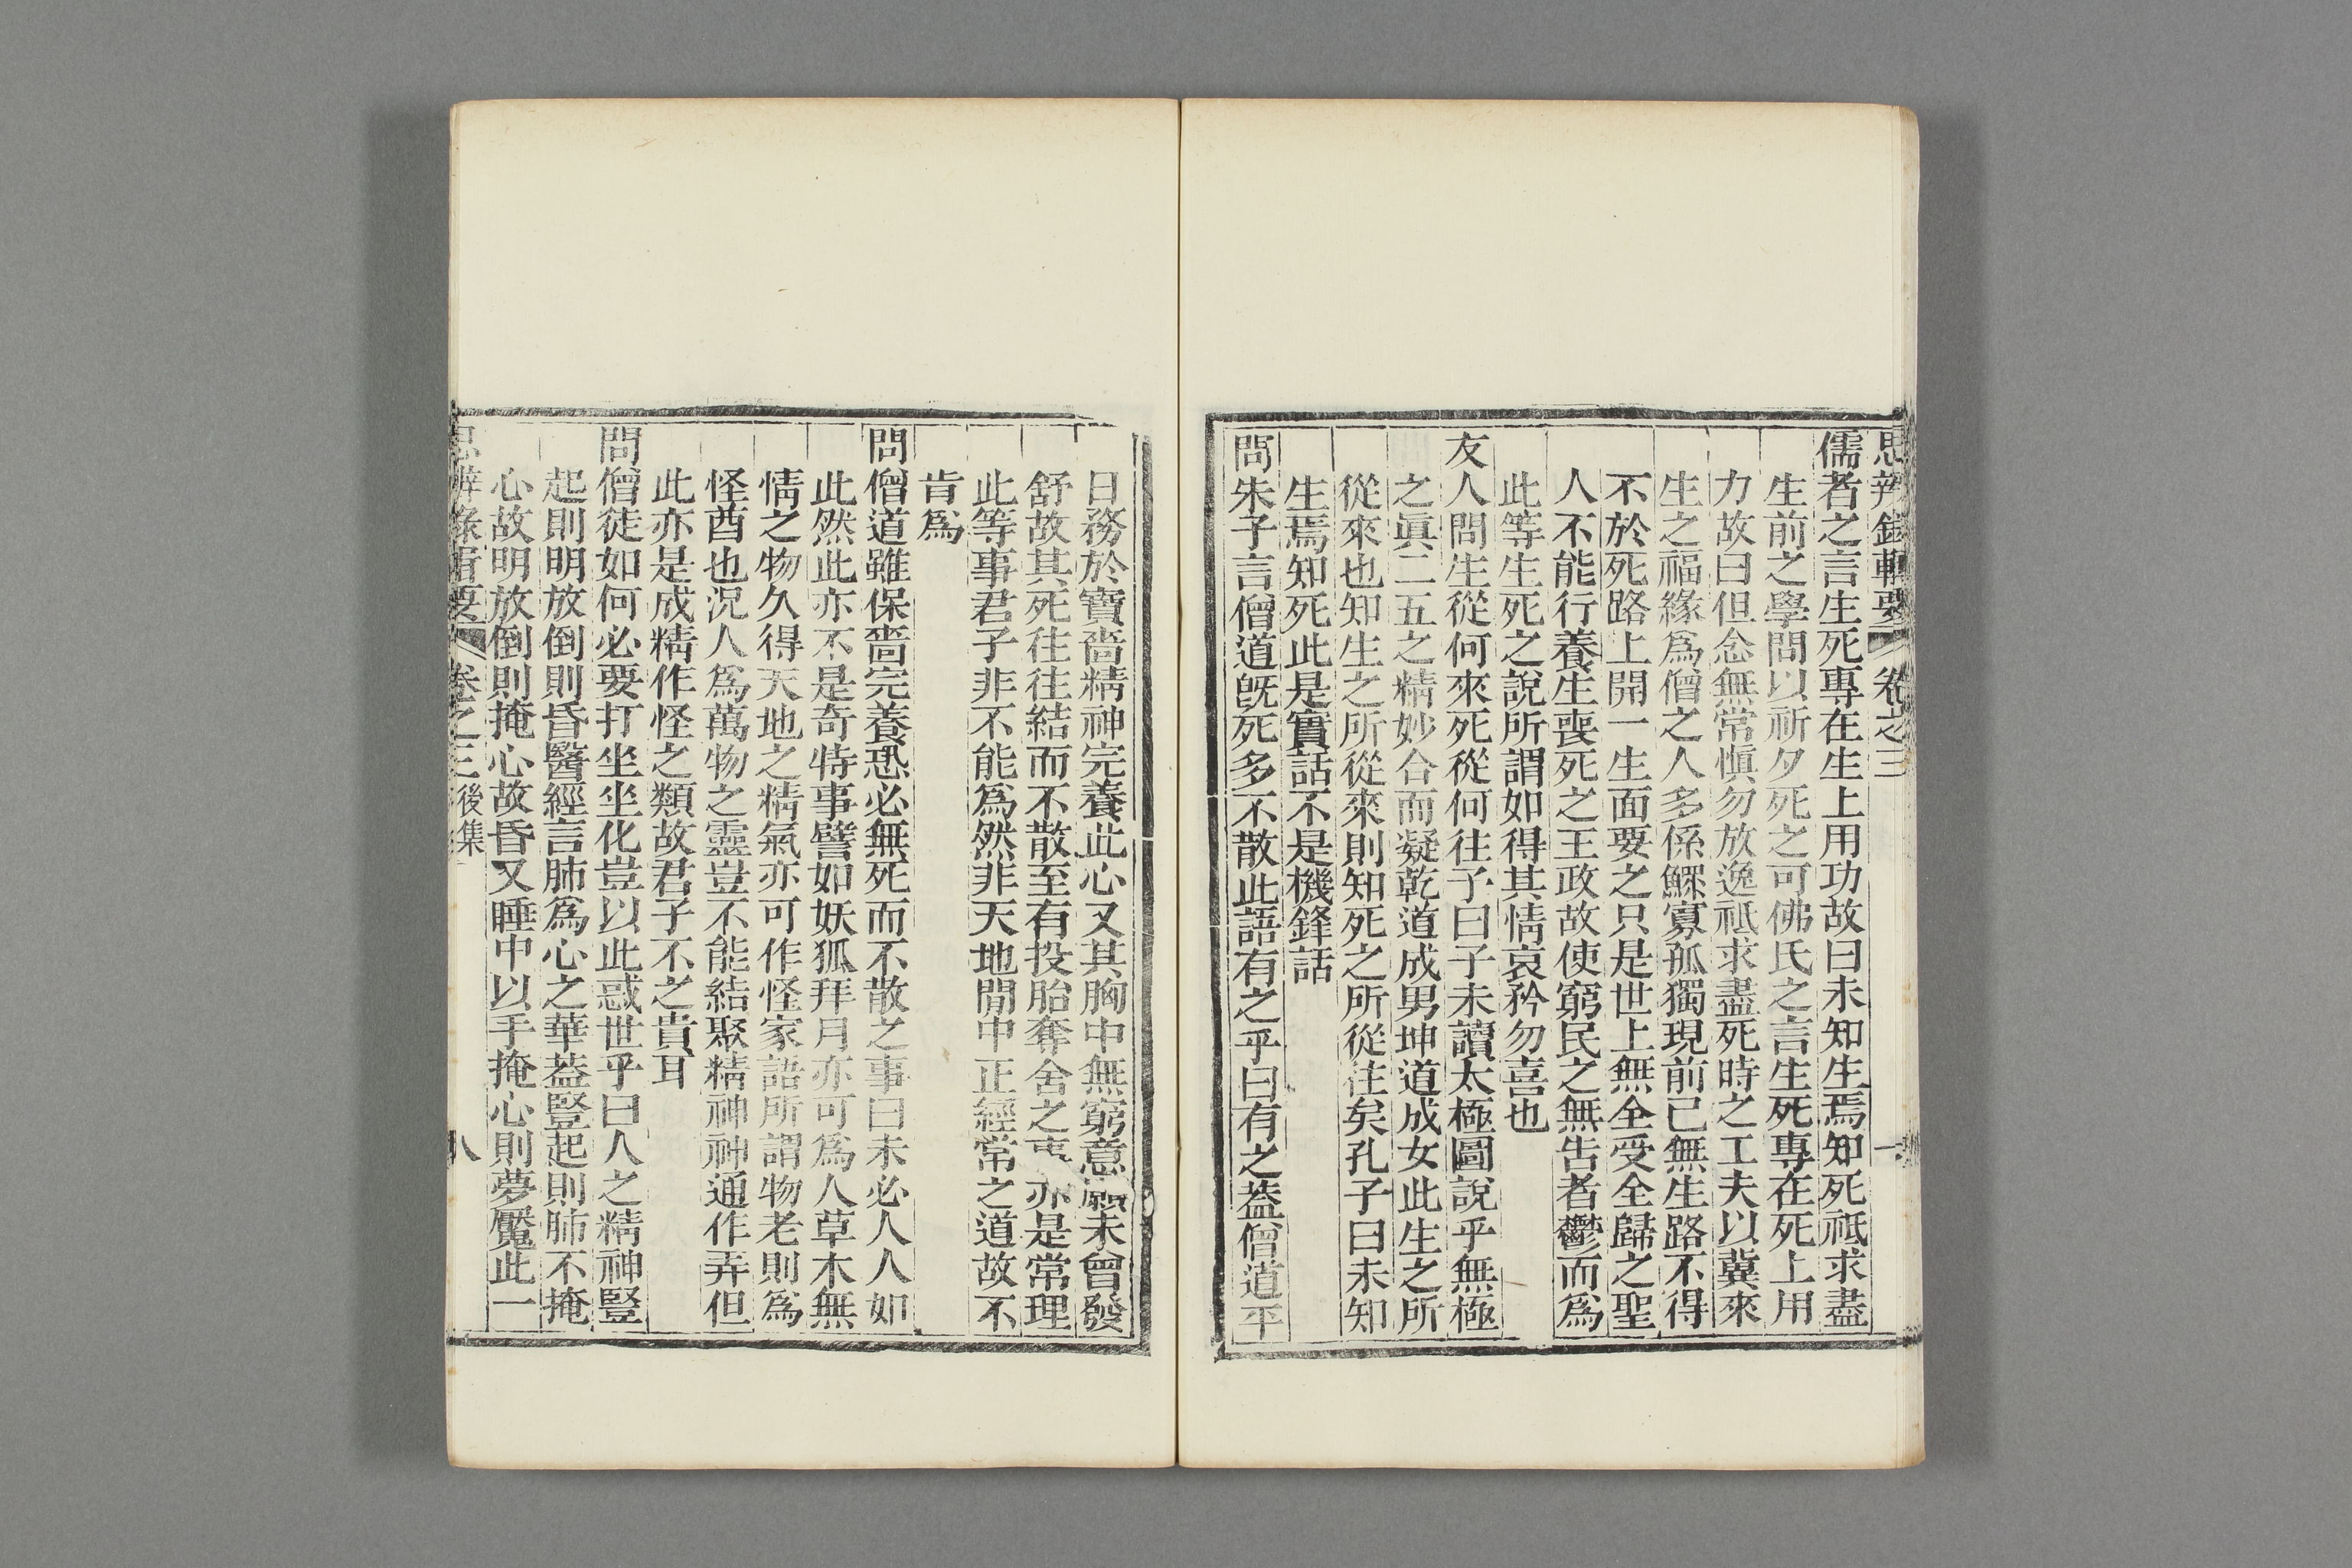 思辨錄輯要 卷之三
儒者之言生死專在生上用功故曰未知生焉知死祗求盡
生前之學問以祈夕死之可佛氏之言生死專在死上用
力故曰但念無常愼勿放逸祗求盡死時之工夫以冀來
生之福緣爲僧之人多係鰥寡孤獨現前已無生路不得
不於死路上開一生面要之只是世上無全受全歸之聖
人不能行養生喪死之王政故使窮民之無告者鬱而爲
此等生死之說所謂如得其情哀矜勿喜也
友人問生從何來死從何往予曰子未讀太極圖說乎無極
之眞二五之精妙合而凝乾道成男坤道成女此生之所
從來也知生之所從來則知死之所從往矣孔子曰未知
生焉知死此是實話不是機鋒話
問朱子言僧道旣死多不散此語有之乎曰有之葢僧道平
日務於寶嗇精神完養此心又其胸中無窮意願未曾發
舒故其死往往結而不散至有投胎奪舍之事亦是常理
此等事君子非不能爲然非天地閒中正經常之道故不
肯爲
問僧道雖保嗇完養恐必無死而不散之事曰未必人人如
此然此亦不是奇特事譬如妖狐拜月亦可爲人草木無
情之物久得天地之精氣亦可作怪家語所謂物老則爲
怪酉也況人爲萬物之靈豈不能結聚精神神通作弄但
此亦是成精作怪之類故君子不之貴耳
問僧徒如何必要打坐坐化豈以此惑世乎曰人之精神豎
起則明放倒則昏醫經言肺爲心之華葢豎起則肺不掩
心故明放倒則掩心故昏又睡中以手掩心則夢魘此一
思辨錄輯要 卷之三 後集 八